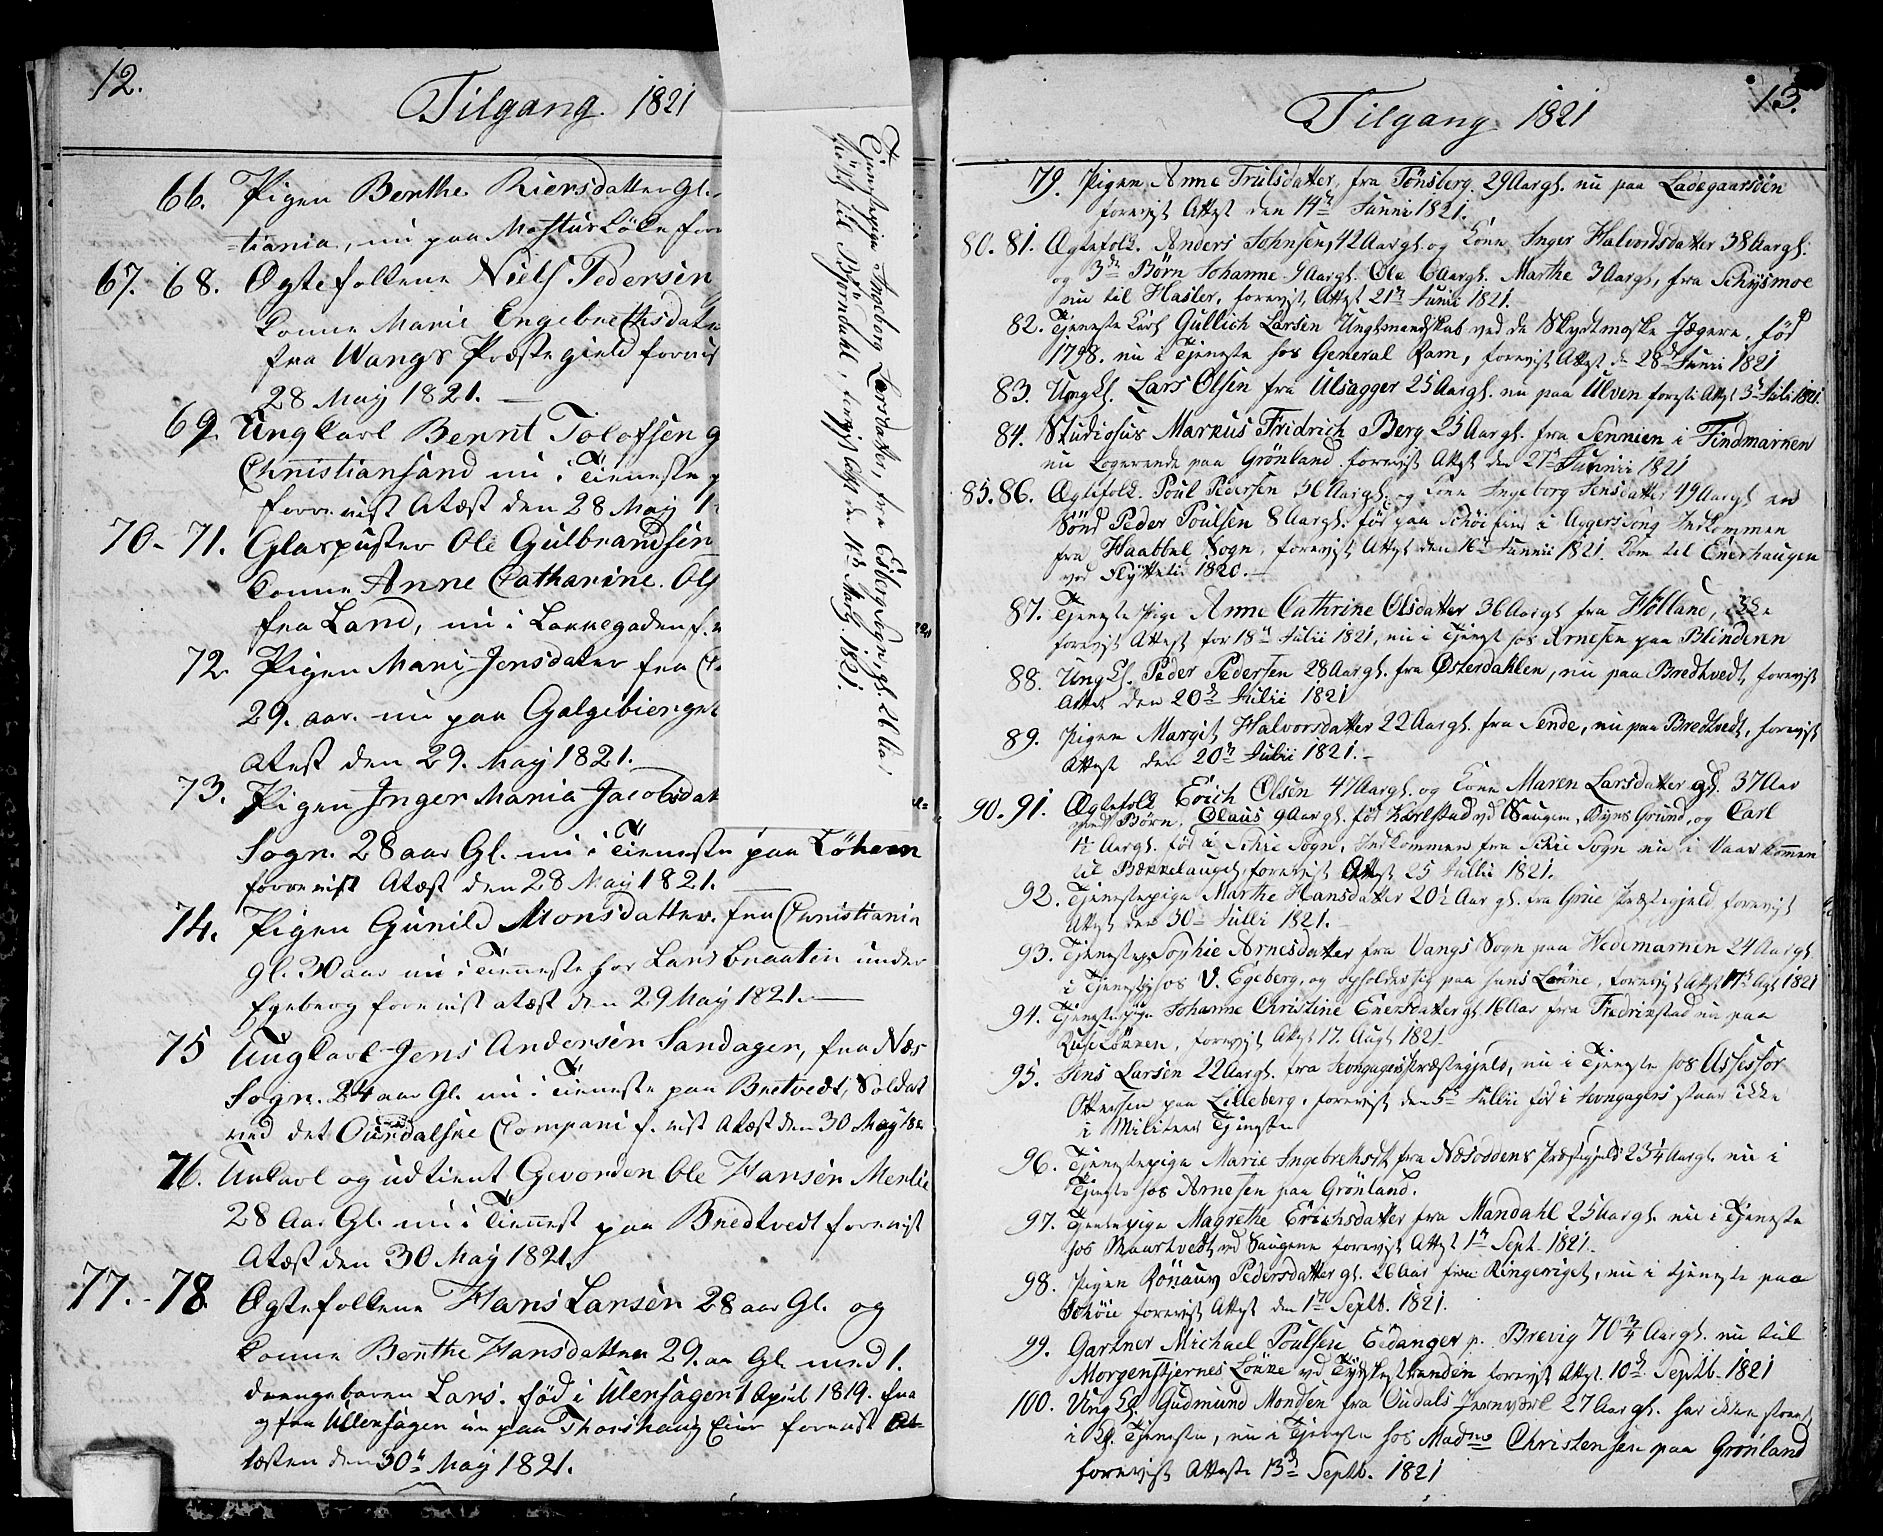 12.
Tilgang 1821
66. Pigen Benthe Riersdatter Gl.
tiania, nu paa Mosturløke forr
67. 68. Ægtefolkene Niels Pedersen
konne Marie Engebrethsdater
fra Wangs Præstegield forevist
28 May 1821.
69. Ungkarl Bernt Tolofsen g
Christiansand nu i Tieneste
forrevist Atæst den 28 May 1
70 - 71. Glaspuster Ole Gulbrandsen
konne Anne Catharine Ols
fra Land, nu i Lakkegaden f.
72 Pigen Mari Jensdater fra
29. aar. nu paa Galgebierget
Atest den 29. May 1821.
73. Pigen Inger Maria Jacobsdat
Sogn. 28 aar Gl. nu i Tieneste paa Løkern
forrevist Atæst den 28 May 1821.
74. Pigen Gunild Monsdatter. fra Christiania
gl. 30 aar nu i Tienneste hos Lars braatin under
Egeberg forrevist atæst den 29 May 1821.
75 Ungkarl Jens Andersen Sandager, fra Næs
Sogn. 24 aar Gl. nu i Tieneste paa Bretvedt, Soldat
ved det Ourdalske Compani f. vist Atæst den 30 May 182
76. Unkarl og udtient Gevorden Ole Hansen Menlie
28 Aar Gl. nu i Tiennest paa Bredtvedt forrevist
Atæst den 30 May 1821.
77. - 78. Ægtefolkene Hans Larsen 28 aar Gl. og
konne Benthe Hansdatter 29. aa Gl. med 1.
drengebaren Lars. fød i Ulensager 1 April 1819. fra
Ullensager nu paa Thorshaug Eier forevist At-
testen den 30te May 1821.
Tjenestepige Ingeborg Larsdatter, fra Edsberg Sogn, gl. 26 Aar
flyttet til Bjørndahl, forevist Attest den 16de Marty 1821.
13.
Tilgang 1821
79. Pigen Anne Trulsdatter, fra Tönsberg. 29 Aar gl. nu paa Ladegaarsöen
forevist Attest den 14de Junni 1821.
80. 81. Ægtefolk. Anders Johnsen, 42 Aar gl. og Kone Inger Halvordsdatter 38 Aar gl:
og 3de Børn Johanne 9 Aar gl. Ole 6 Aar gl. Marthe 3 Aar gl, fra Schysmoe
nu til Hasler, forevist Attest 21de Junii 1821.
82. Tjeneste Karl Gullich Larsen Ungtmandskab ved de Skydtmoske Jægere, fød
1798. nu i Tjeneste hos General Ram, forevist Attest d 28de Junii 1821
83. Ungk. Lars Olsen fra Ulsagger 25 Aar gl. nu paa Ulven forevist Attest 3de Juli 1821.
84. Studiosus Markus Fridrich Berg 25 Aar gl. fra Sennien i Findmarken
nu Logerende paa Grönland forevist Attest den 27de Junnii 1821
85. 86. Ægtefolk. Poul Pedersen 36 Aar gl. og Kone Ingeborg Jensdatter 49 Aar gl en
Sönd Peder Poulsen 8 Aar gl. föd paa Schöifine i Aggersdong Indkommen
fra Haabbel Sogn, forevist Attest den 16de Junnii 1821. Kom til Enerhaugen
ved Flyttetid 1820.
87. Tjeneste Pige Anne Cathrine Olsdatter 36 Aar gl fra Hölland, ikke
forevist Attest for 18de Julii 1821, nu i Tjenest hos Arnesen paa Blinderen
88. Ungk. Peder Pedersen 28 Aar gl. fra Østerdahlen, nu paa Bredtvedt, forevist
Attest den 20de Julii 1821
89. Pigen Margit Halvorsdatter 22 Aar gl. fra Sende, nu paa Bredtvedt, forevist
Attest den 20de Julii 1821.
90. 91. Ægtefolk Erich Olsen 47 Aar gl. og Kone Maren Larsdatter gl. 37 Aar
med Börn. Claus 9 Aar gl. föd Karlstad ved Saugene, Byns Grund, og Carl
1½ Aar gl. föd i Schie Sogn, Indkommen fra Schie Sogn nu i Vaar kommen
til Bækkelauget forevist Attest 25 Jullii 1821.
92. Tjenestepige Marthe Hansdatter 20½ Aar gl. fra Grue Præstegjeld forevist
Attest den 30te Julli 1821.
93. Tjenestepg Sophie Arnesdatter fra Vangs Sogn paa Hedemarken 24 Aar gl
i Tjeneste hos V. Egeberg, og opholder sig paa hans Lökke, forevist Attest 17de Agt 1821
94. Tjenestepige Johanne Christine Enersdatter gl. 16 Aar fra Fredrikstad nu paa
Kuselökken, forevist Attest 17. Augt 1821
95. Jens Larsen 22 Aar gl. fra Kongagers Præstegjeld, nu i Tjeneste hos Assessor
Ottersen paa Lilleberg, forevist den 5te Jullii föd i Kongagers staar ikke
i Militær Tjeneste
96. Tjenestepige Marie Ingebrehtsdt fra Næsoddens Præstegjeld 23¼ Aar gl. nu i
Tjeneste hos Arnesen paa Grönland.
97. Tjenestepige Magrethe Erichsdatter fra Mandahl 25 Aar gl. nu i Tjeneste
hos Maartvedt ved Saugene forevist Attest 1te Sept. 1821.
98. Pigen Rönauv Pedersdatter gl. 26 Aar fra Ringeriget, nu i tjeneste paa
Schöie forevist Attest den 1te Septb. 1821.
99. Gartner Michael Poulsen Eidanger p. Brevig 70¾ Aar gl. nu til
Morgenstjernes Lökke ved Tydskestranden forevist Attest 10de Septb. 1821
100. Ung K. Gudmund Monsen fra Oudals Jernværk 27 Aar gl. har ikke staaet
i K. Tjeneste, nu i Tjeneste hos Madme Christensen paa Grönland
forevist Atteste 13de Septb. 1821